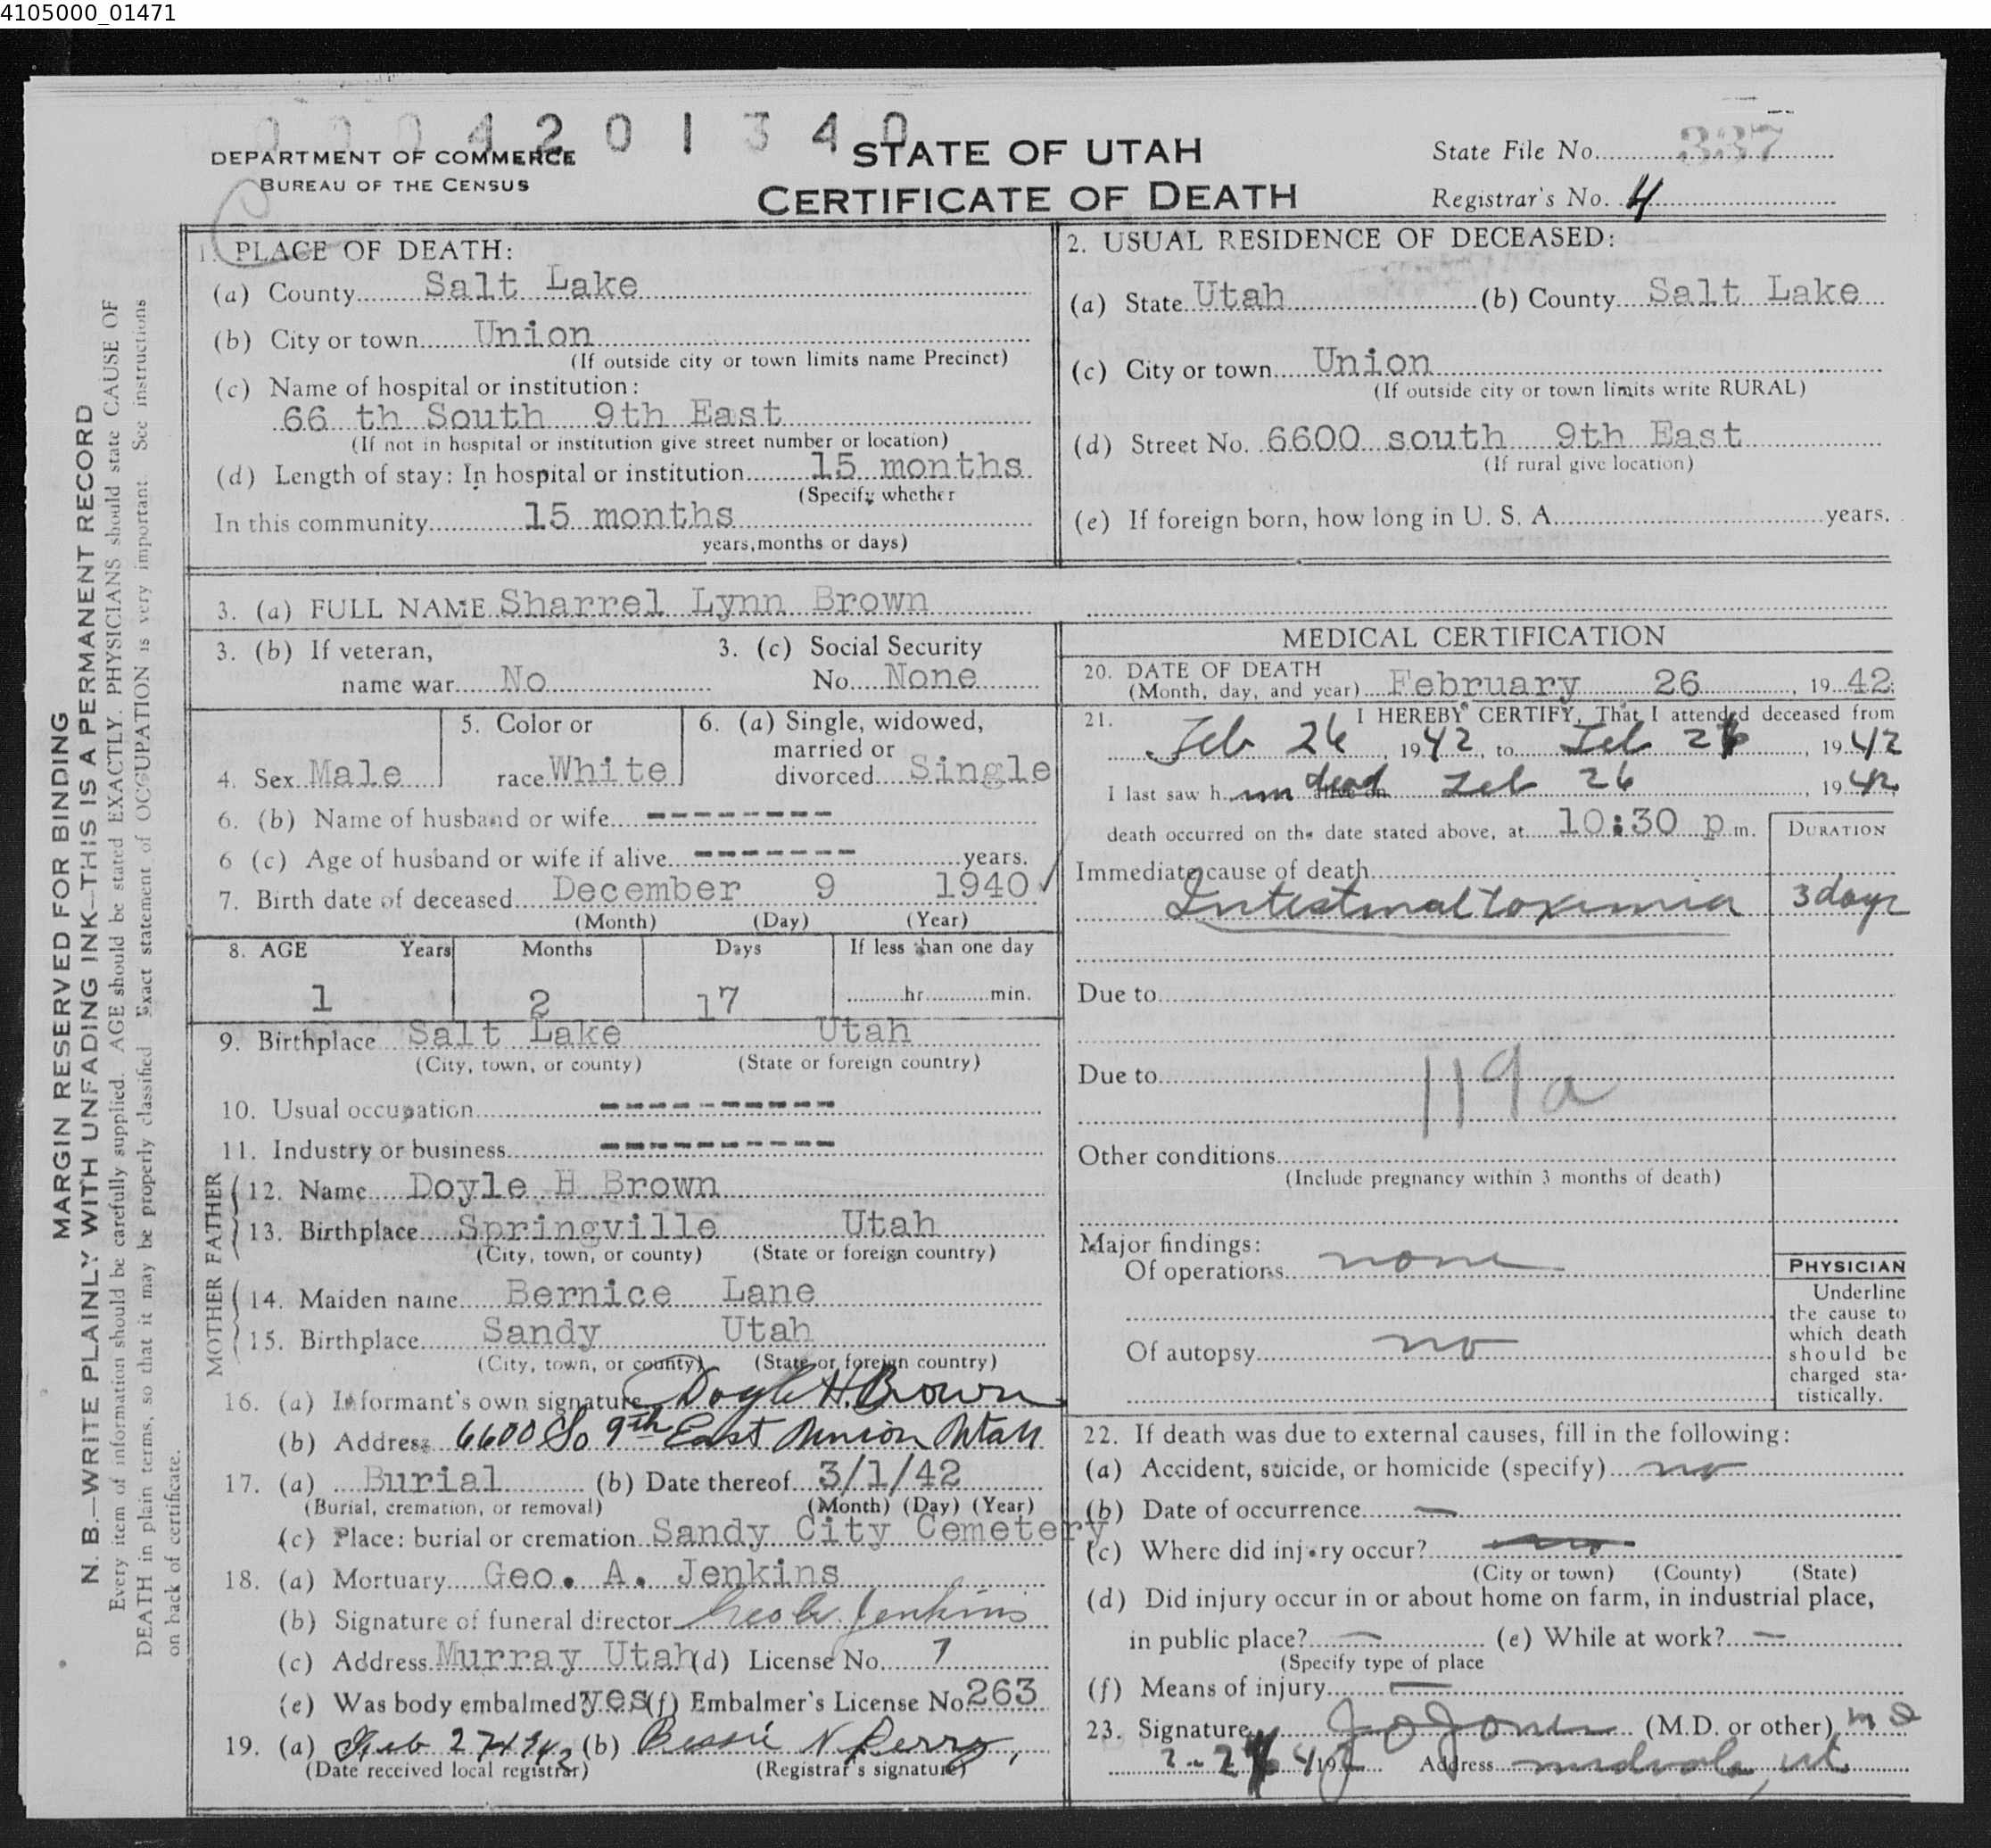 4105000_01471
0 0 0 4 2 0 1 3 4 0
DEPARTMENT OF COMMERCE
BUREAU OF THE CENSUS
STATE OF UTAH
CERTIFICATE OF DEATH
State File No. 337
Registrar's No. 4
MARGIN RESERVED FOR BINDING
N. B.—WRITE PLAINLY WITH UNFADING INK—THIS IS A PERMANENT RECORD
Every item of information should be carefully supplied. AGE should be stated EXACTLY. PHYSICIANS should state CAUSE OF
DEATH in plain terms, so that it may be properly classified Exact statement of OCCUPATION is very important. See instructions
on back of certificate.
1. PLACE OF DEATH:
(a) County Salt Lake
(b) City or town Union
(If outside city or town limits name Precinct)
(c) Name of hospital or institution:
66 th South 9th East
(If not in hospital or institution give street number or location)
(d) Length of stay: In hospital or institution 15 months
(Specify whether
In this community 15 months
years, months or days)
2. USUAL RESIDENCE OF DECEASED:
(a) State Utah (b) County Salt Lake
(c) City or town Union
(If outside city or town limits write RURAL)
(d) Street No. 6600 south 9th East
(If rural give location)
(e) If foreign born, how long in U. S. A. years.
3. (a) FULL NAME Sharrel Lynn Brown
3. (b) If veteran,
name war No
3. (c) Social Security
No. None
4. Sex Male
5. Color or
race White
6. (a) Single, widowed,
married or
divorced Single
6. (b) Name of husband or wife ---------
6 (c) Age of husband or wife if alive -------- years.
7. Birth date of deceased December 9 1940 ✓
(Month) (Day) (Year)
8. AGE Years Months Days If less than one day
1 2 17 hr. min.
9. Birthplace Salt Lake Utah
(City, town, or county) (State or foreign country)
10. Usual occupation ----------
11. Industry or business ----------
FATHER
12. Name Doyle H Brown
13. Birthplace Springville Utah
(City, town, or county) (State or foreign country)
MOTHER
14. Maiden name Bernice Lane
15. Birthplace Sandy Utah
(City, town, or county) (State or foreign country)
16. (a) Informant's own signature Doyle H. Brown
(b) Address 6600 So 9th East Union Utah
17. (a) Burial (b) Date thereof 3/1/42
(Burial, cremation, or removal) (Month) (Day) (Year)
(c) Place: burial or cremation Sandy City Cemetery
18. (a) Mortuary Geo. A. Jenkins
(b) Signature of funeral director Geo A. Jenkins
(c) Address Murray Utah (d) License No. 7
(e) Was body embalmed? yes (f) Embalmer's License No. 263
19. (a) Feb 27 1942 (b) Bessie N Perry,
(Date received local registrar) (Registrar's signature)
MEDICAL CERTIFICATION
20. DATE OF DEATH
(Month, day, and year) February 26, 1942
21. I HEREBY CERTIFY, That I attended deceased from
Feb 26, 1942, to Feb 26, 1942
I last saw him dead alive on Feb 26, 1942,
death occurred on the date stated above, at 10:30 p m.
DURATION
Immediate cause of death
Intestinal toximia 3 days
Due to
Due to
119a
Other conditions
(Include pregnancy within 3 months of death)
Major findings:
Of operations none
Of autopsy no
PHYSICIAN
Underline
the cause to
which death
should be
charged sta-
tistically.
22. If death was due to external causes, fill in the following:
(a) Accident, suicide, or homicide (specify) no
(b) Date of occurrence —
(c) Where did injury occur?
(City or town) (County) (State)
(d) Did injury occur in or about home on farm, in industrial place,
in public place? — (e) While at work? —
(Specify type of place
(f) Means of injury —
23. Signature J O Jones (M.D. or other) M D
2-26 1942 Address Midvale, Ut.